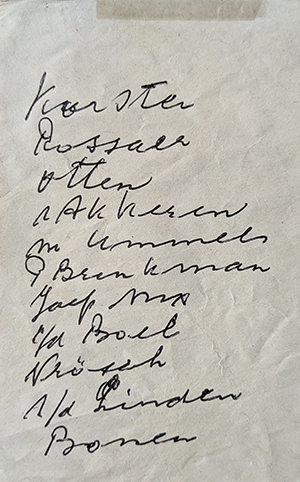 Korster
Rossaer
Otten
v Akkeren
m Ummels
P Brinkman
Joep Nix
v/d Boel
Drösch
v/d Linden
Bonen